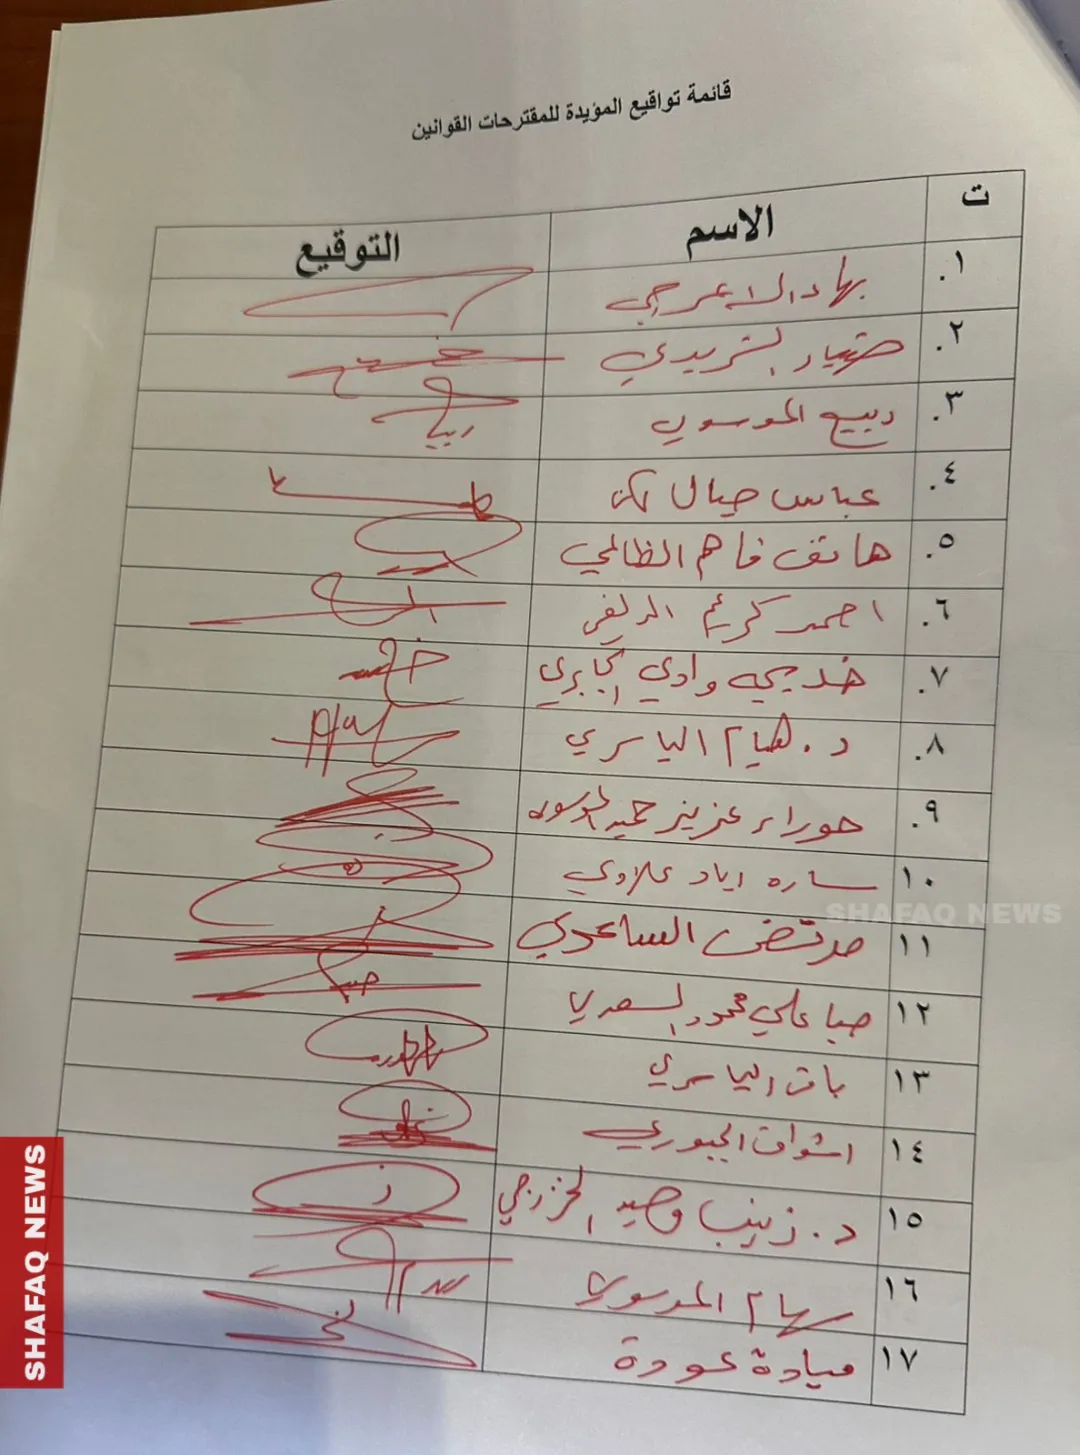 قائمة تواقيع المؤيدة للمقترحات القوانين
ت الاسم التوقيع
١. بهاء الاعرجي
٢. الشريدي
٣. ربيع الموسوي
٤. عباس حيال
٥. هاتف فاهم الظالمي
٦. احمد كريم الدلفي
٧. خديجه وادي الجابري
٨. د. هيام الياسري
٩. حوراء عزيز حميد الموسوي
١٠ ساره اياد علاوي
١١ مرتضى الساعدي
١٢ صبا علي محمود السعدي
١٣ الياسري
١٤ اشواق الجبوري
١٥ د. زينب وحيد الخزرجي
١٦ سهام الموسوي
١٧ ميادة عودة
SHAFAQ NEWS
SHAFAQ NEWS